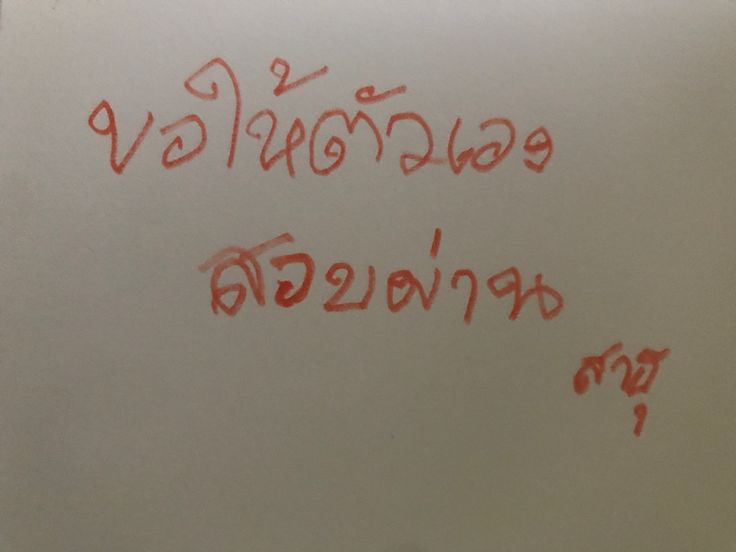 ขอให้ตัวเอง
สอบผ่าน
สาธุ